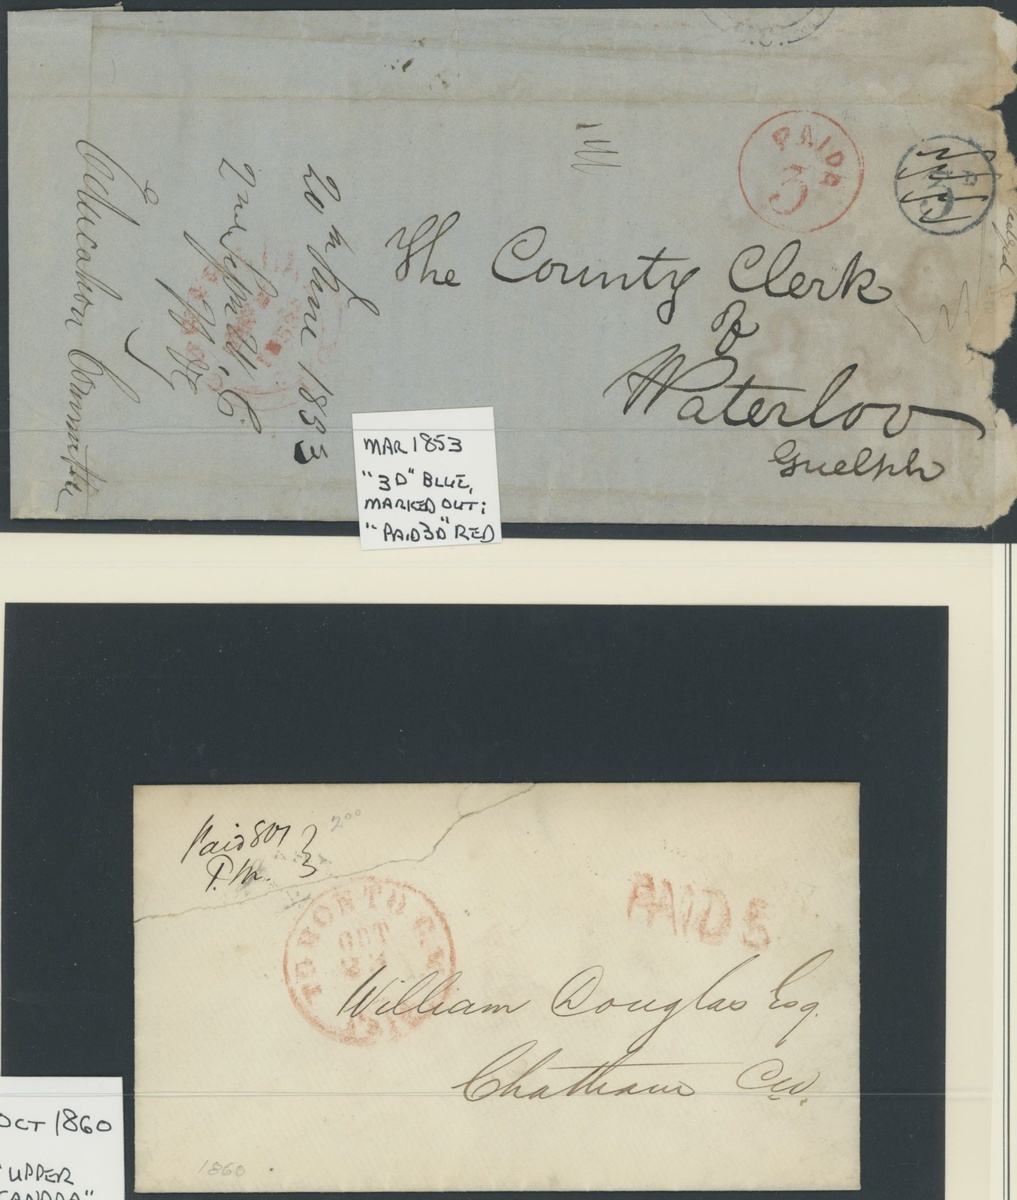 PAID 3D
3D
The County Clerk
of
Waterloo
Guelph
20th June 1853
Education Committee
MAR 1853
"3D" BLUE,
MARKED OUT;
"PAID3D" RED
Paid 801
P.M. 3
2⁰⁰
TORONTO C.W.
OCT
PAID 5
William Douglas Esq.
Chatham CW.
1860
OCT 1860
"UPPER
CANADA"